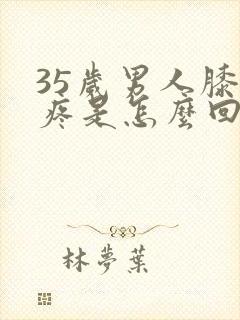 35歲男人膝
疼是怎麼回
林夢葉